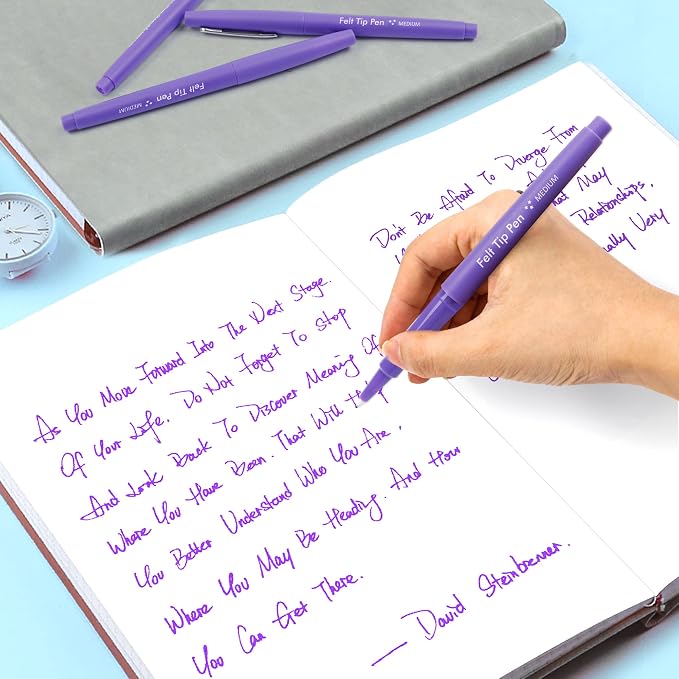 Felt Tip Pen MEDIUM
Felt Tip Pen MEDIUM
Don't Be Afraid To Diverge From
May
Relationships,
Very
Felt Tip Pen MEDIUM
As You Move Forward Into The Next Stage.
Of Your Life. Do Not Forget To Stop
And Look Back To Discover Meaning Of
Where You Have Been. That Will Help
You Better Understand Who You Are,
Where You May Be Heading. And How
You Can Get There.
— David Steinbrenner.